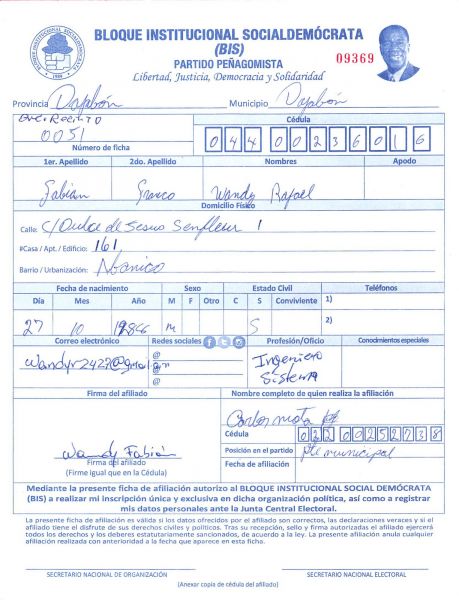 BLOQUE INSTITUCIONAL SOCIALDEMÓCRATA
(BIS)
PARTIDO PEÑAGOMISTA
Libertad, Justicia, Democracia y Solidaridad
09369
BLOQUE INSTITUCIONAL SOCIALDEMÓCRATA
Provincia Dajabón Municipio Dajabón
0051
Número de ficha
Cédula
044 0023601 6
1er. Apellido 2do. Apellido Nombres Apodo
Fabian Franco Wandy Rafael
Domicilio Físico
Calle: C/ Dulce de Jesus Senfleur 1
#Casa / Apt. / Edificio: 161
Barrio / Urbanización: Abanico
Fecha de nacimiento Sexo Estado Civil Teléfonos
Día Mes Año M F Otro C S Conviviente 1)
27 10 M S 2)
Correo electrónico Redes sociales Profesión/Oficio Conocimientos especiales
@
@
@
Ingeniero
Sistema
Firma del afiliado Nombre completo de quien realiza la afiliación
Carlos mota
Cédula
022 0025273 8
Wandy Fabián
Firma del afiliado
(Firme igual que en la Cédula)
Posición en el partido municipal
Fecha de afiliación
Mediante la presente ficha de afiliación autorizo al BLOQUE INSTITUCIONAL SOCIAL DEMÓCRATA
(BIS) a realizar mi inscripción única y exclusiva en dicha organización política, así como a registrar
mis datos personales ante la Junta Central Electoral.
La presente ficha de afiliación es válida si los datos ofrecidos por el afiliado son correctos, las declaraciones veraces y si el
afiliado tiene el disfrute de sus derechos civiles y políticos. Tras su recepción, sello y firma autorizadas el afiliado ejercerá
todos los derechos y los deberes estatutariamente sancionados, de acuerdo a la ley. La presente afiliación anula cualquier
afiliación realizada con anterioridad a la fecha que aparece en esta ficha.
SECRETARIO NACIONAL DE ORGANIZACIÓN SECRETARIO NACIONAL ELECTORAL
(Anexar copia de cédula del afiliado)